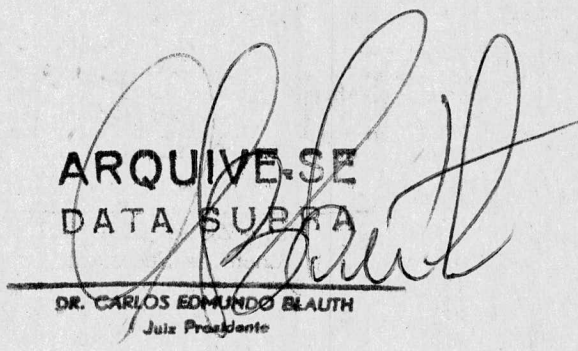 ARQUIVE-SE
DATA SUPRA
Blauth
DR. CARLOS EDMUNDO BLAUTH
Juiz Presidente